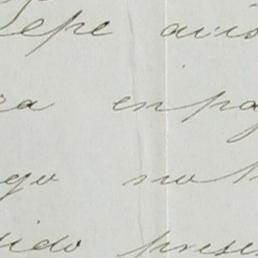 Pepe avis
ra en pa
go no h
sido prese